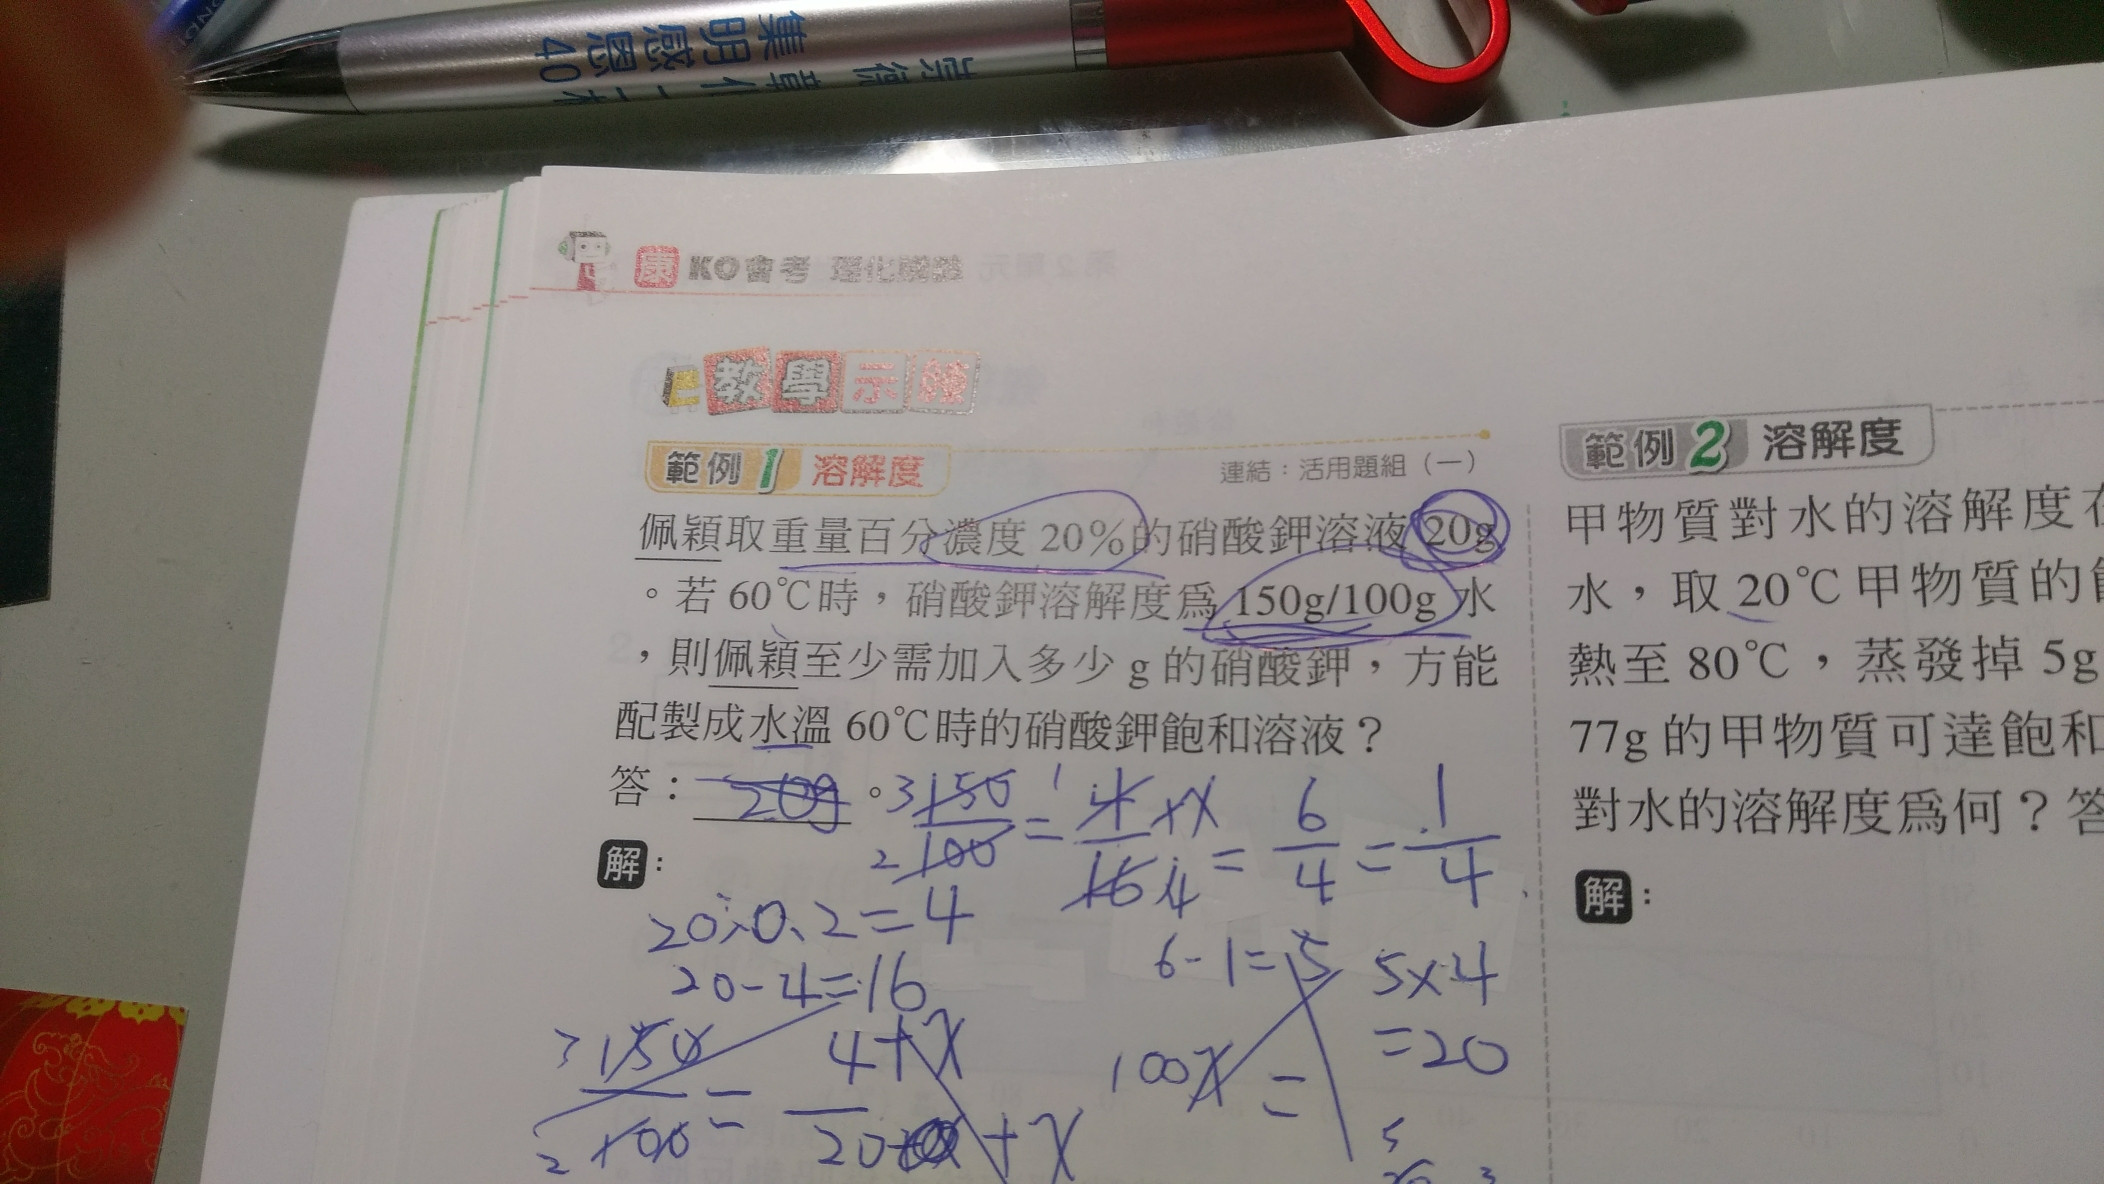 集明感恩40
康 KO會考 理化
教學示範
範例1 溶解度
連結：活用題組（一）
佩穎取重量百分濃度 20％的硝酸鉀溶液 20g
。若 60℃時，硝酸鉀溶解度為 150g/100g 水
，則佩穎至少需加入多少 g 的硝酸鉀，方能
配製成水溫 60℃時的硝酸鉀飽和溶液？
答：20g。
3 150 / 2 100 = 1 4+X / 16 4 = 6/4 = 1/4
解：
20÷0.2=4
20-4=16
6-1=5
5×4
=20
3 150 / 2 100 = 4+X / 20+X
100X =
範例2 溶解度
甲物質對水的溶解度在
水，取 20℃甲物質的
熱至 80℃，蒸發掉 5g
77g 的甲物質可達飽和
對水的溶解度為何？答
解：